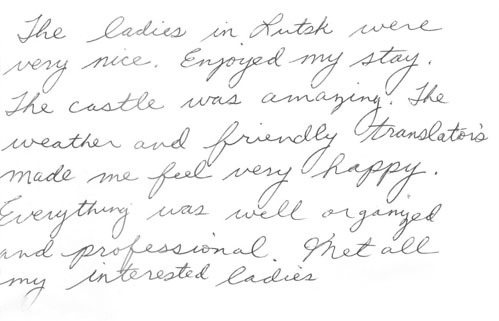 The ladies in Lutsk were
very nice. Enjoyed my stay.
The castle was amazing. The
weather and friendly translator's
made me feel very happy.
Everything was well organized
and professional. Met all
my interested ladies